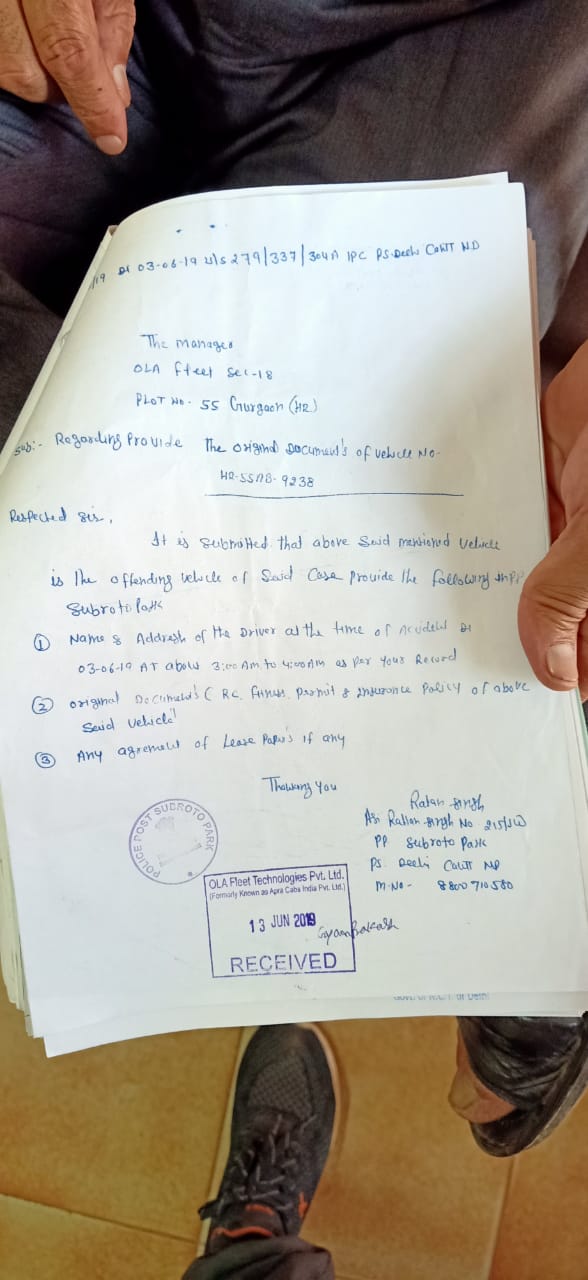 /19 Dt 03-06-19 U/S 279/337/304A IPC PS. Delhi Cantt ND
The manager
OLA fleet Sec-18
PLOT No. 55 Gurgaon (HR)
Sub:- Regarding Provide The original Document's of vehicle No-
HR-55AB-9238
Respected Sir,
It is submitted that above Said mentioned vehicle
is the offending vehicle of Said Case provide the following in PP
Subroto Park
① Name & Address of the Driver at the time of Accident Dt
03-06-19 AT about 3:00 AM to 4:00 AM as per your Record
② original Document's ( RC, fitness, Permit & Insurance Policy of above
Said vehicle
③ Any agreement of Lease Paper's if any
Thanking you
Ratan Singh
ASI Rattan Singh No 215/SW
PP Subroto Park
PS. Delhi Cantt ND
M.No- 8800710580
POLICE POST SUBROTO PARK
OLA Fleet Technologies Pvt. Ltd.
(Formerly Known as Apra Cabs India Pvt. Ltd.)
13 JUN 2019
Gyan Prakash
RECEIVED